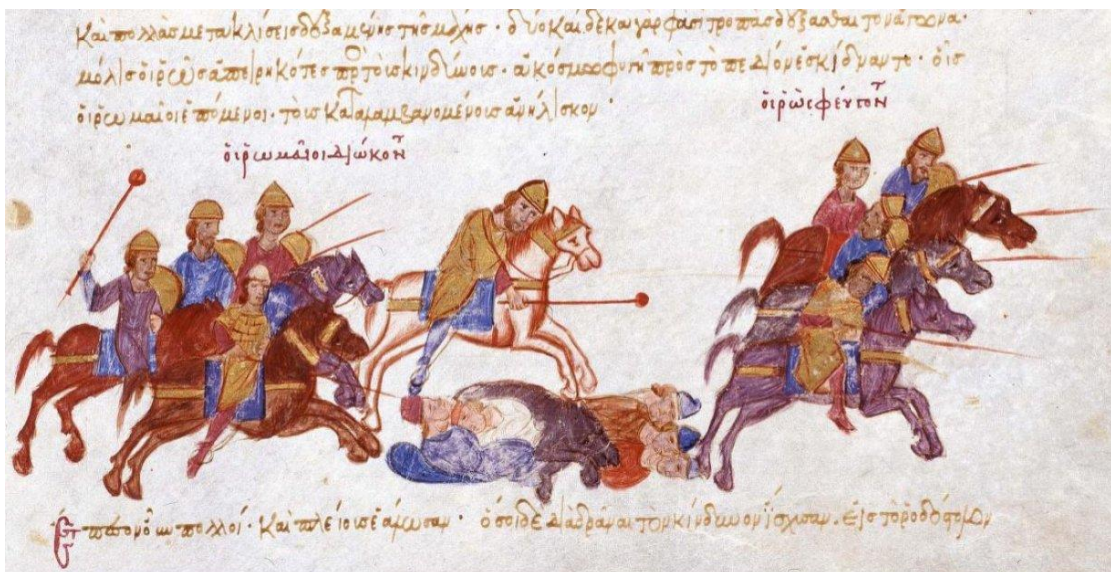 καὶ πολλὰς μετακλίσεις δεξαμένης τῆς μάχης · δύο καὶ δέκα γάρ φασι τροπὰς δέξασθαι τὸν ἀγῶνα ·
μόλις οἱ ῥῶς ἀπειρηκότες πρὸς τοὺς κινδύνους · ἀκόσμῳ φυγῇ πρὸς τὸ πεδίον ἐσκίδναντο · οἷς
οἱ ῥωμαῖοι ἑπόμενοι · τοὺς καταλαμβανομένους ἀνήλισκον ·
οἱ ῥῶς φεύγοντ
οἱ ῥωμαῖοι διώκοντ
ἔπεσον οὖν πολλοί · καὶ πλείους ἑάλωσαν · ὅσοι δὲ διαδρᾶναι τὸν κίνδυνον ἴσχυσαν · εἰς τὸ